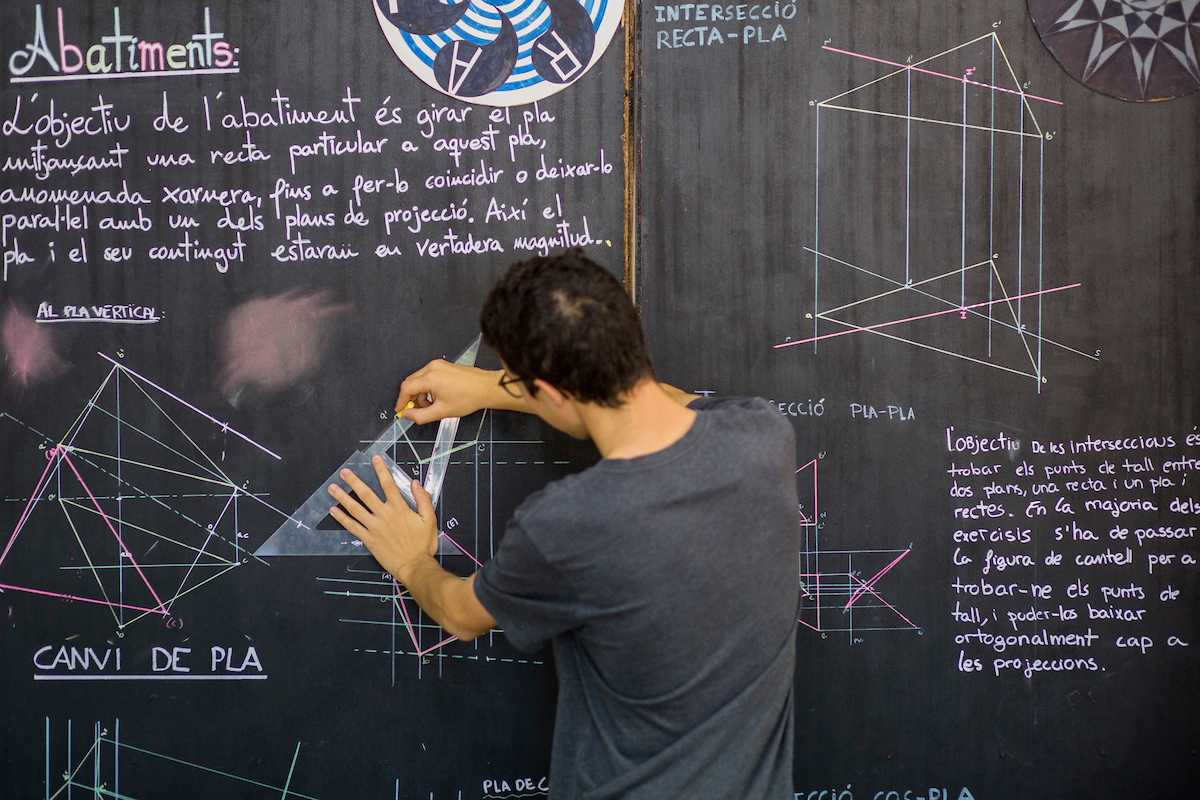 Abatiments:
L'objectiu de l'abatiment és girar el pla
mitjançant una recta particular a aquest pla,
anomenada xarnera, fins a fer-lo coincidir o deixar-lo
paral·lel amb un dels plans de projecció. Així el
pla i el seu contingut estaran en vertadera magnitud.
AL PLA VERTICAL:
CANVI DE PLA
PLA DE C
INTERSECCIÓ
RECTA-PLA
SECCIÓ PLA-PLA
L'objectiu De les interseccions és
trobar els punts de tall entre
dos plans, una recta i un pla i
rectes. En la majoria dels
exercisis s'ha de passar
la figura de cantell per a
trobar-ne els punts de
tall, i poder-los baixar
ortogonalment cap a
les projeccions.
CCIÓ COS-PLA